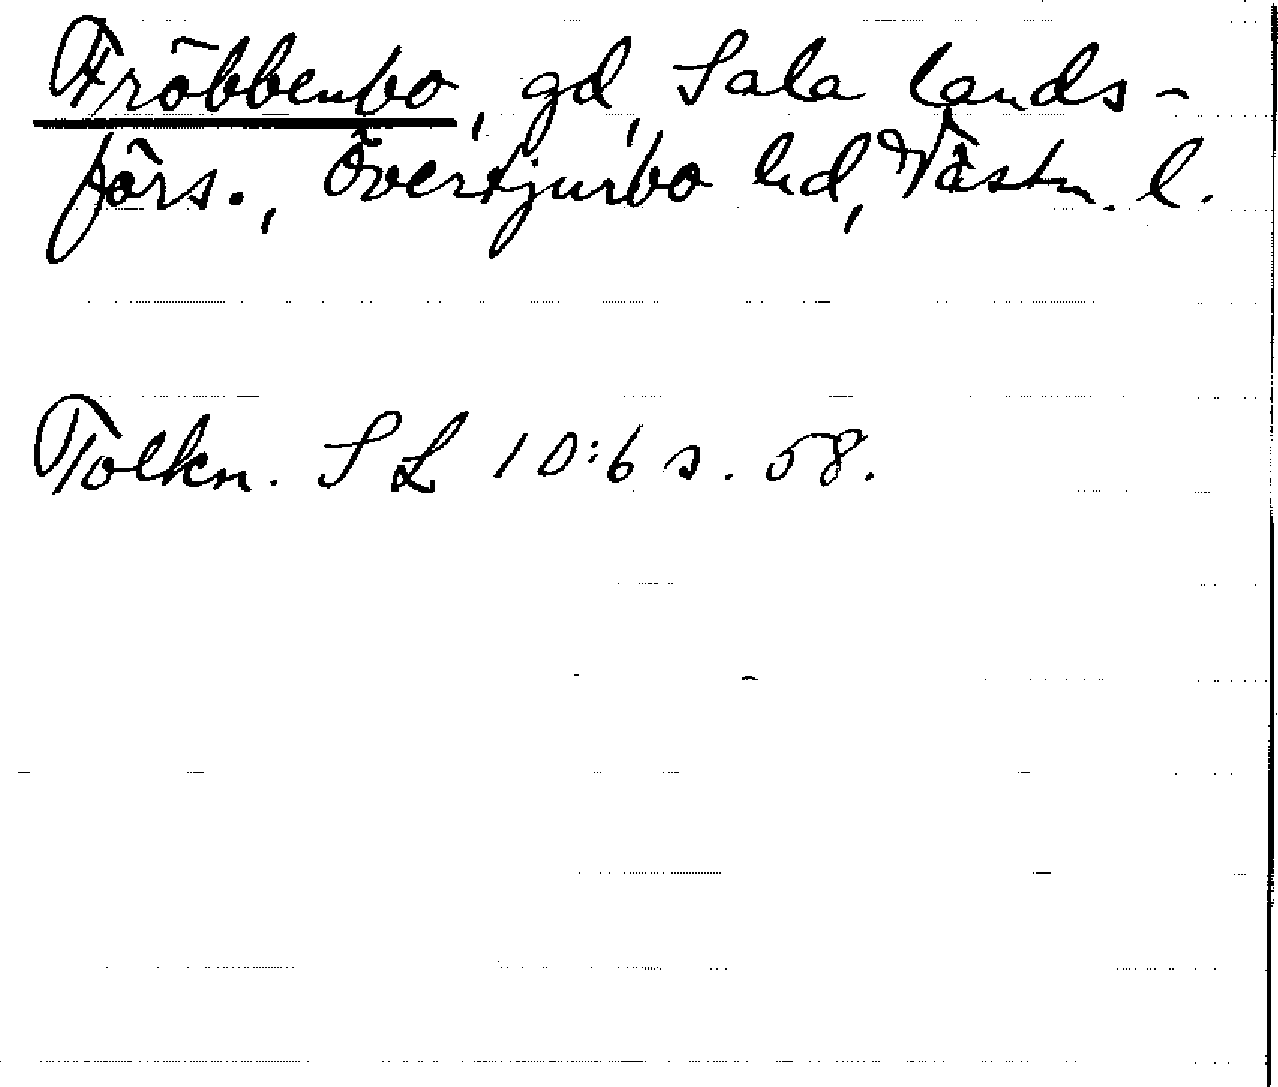 Fröbbenbo, gd, Sala lands-
förs., Övertjurbo hd, Västm. l.
Tolkn. SL 10:6 s. 58.